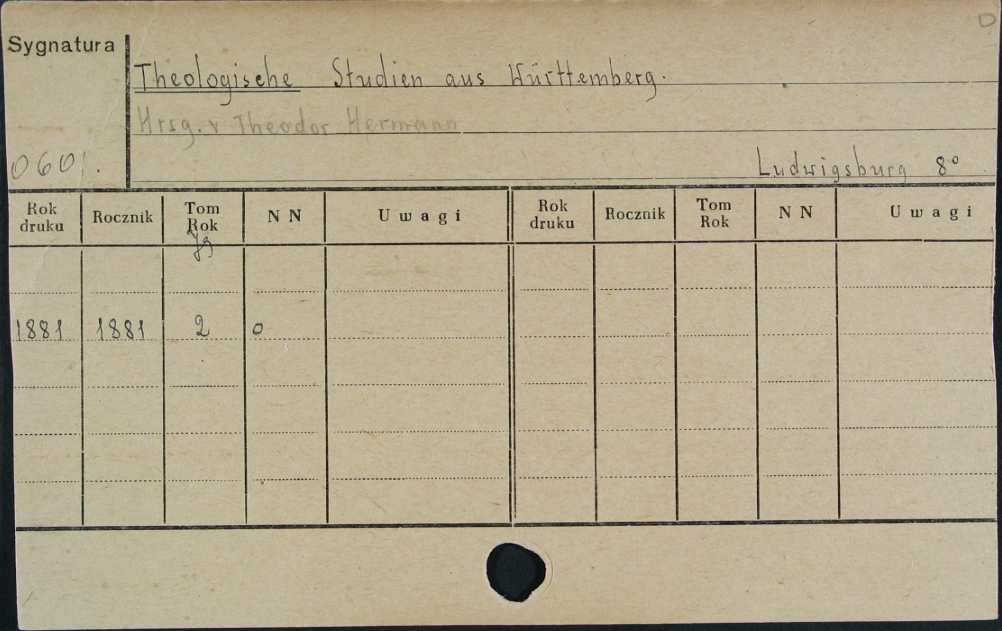 D
Sygnatura
Theologische Studien aus Württemberg.
Hrsg. v Theodor Hermann
060.
Ludwigsburg 8°
Rok druku Rocznik Tom Rok N N Uwagi Rok druku Rocznik Tom Rok N N Uwagi
Jg
1881 1881 2 0